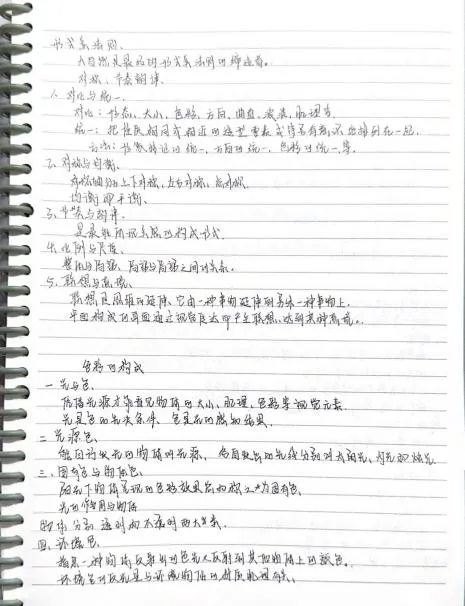 形式美法则、
大自然是最好的形式美法则的缔造者。
对称、节奏韵律、
1、对比与统一、
对比：形态、大小、色彩、方向、曲直、肌理等
统一：把性质相同或相近的造型要素排列在一起、
方法：形象特征的统一、方向的统一、色彩的统一等。
2、对称与均衡、
对称轴分上下对称，左右对称，点对称、
均衡即平衡、
3、节奏与韵律、
是最能所现美感的构成形式、
4、比例与尺度、
整体与局部、局部与局部之间的关系。
5、联想与意境、
联想是思维的延伸、它由一种事物延伸到另外一种事物上，
平面构成的画面通过视觉传达而产生联想、达到某种意境。
色彩的构成
一、光与色、
凭借光源才能看见物体的大小、肌理、色彩等视觉元素、
光是色的先决条件、色是光的感知结果、
二、光源色、
能自行发光的物体叫光源，各自发出的光线分别叫太阳光、灯光和烛光
三、固有色与物体色、
阳光下物体呈现的色彩效果总和称之为固有色、
光的作用与物体
物体分别 透明和不透明两大类、
四、环境色、
指某一种物体反射出的色光又反射到其他物体上的颜色。
环境色的反光是与环境物体的材质肌理有关、